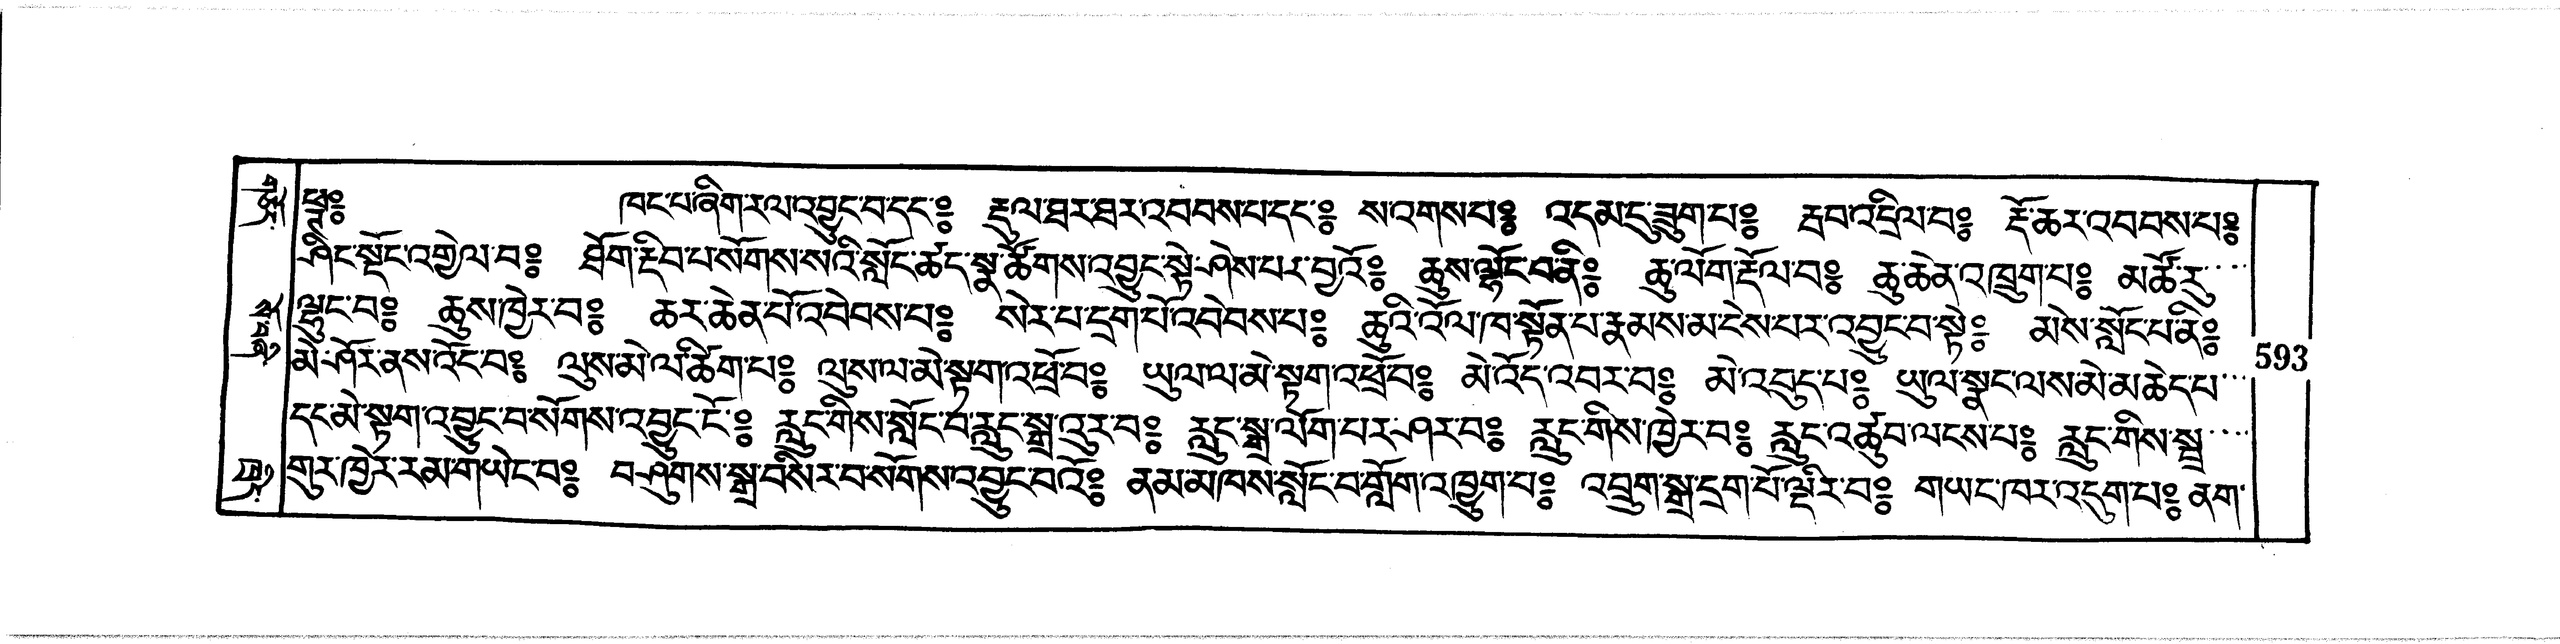 ཕྲ༔ ཁང་པ་ཞིག་རལ་འབྱུང་བ་དང་༔ རྡུལ་ཐར་ཐར་འབབས་པ་དང་༔ ས་འགས་བ༔ འདམ་དུ་ཟླུག་པ༔ རྦབ་འདྲིལ་བ༔ རྡོ་ཆར་འབབས་པ༔
ཤིང་སྡོང་འགྱེལ་བ༔ ཐོག་རྡིབ་པ་སོགས་སའི་སློང་ཚད་སྣ་ཚོགས་འབྱུང་སྟེ་ཤེས་པར་བྱའོ༔ ཆུས་ལྷོང་བནི༔ ཆུ་ལོག་རྡོལ་བ༔ ཆུ་ཆེན་འཁྲུག་པ༔ མཚོ་རུ་
ལྷུང་བ༔ ཆུས་ཁྱེར་བ༔ ཆར་ཆེན་པོ་འབེབས་པ༔ སེར་པ་དྲག་པོ་འབེབས་པ༔ ཆུའི་འོལ་ཁ་སྟོན་པ་རྣམས་མ་ངེས་པར་འབྱུང་བ་སྟེ༔ མེས་སློང་པ་ནི༔
མེ་ཤོར་ནས་འོང་བ༔ ལུས་མེ་ལ་ཚིག་པ༔ ལུས་ལ་མེ་སྟག་འཕྲོ་བ༔ ཡུལ་ལ་མེ་སྟག་འཕྲོ་བ༔ མེ་འོད་འབར་བ༔ མེ་འབུད་པ༔ ཡུལ་སྣང་ལས་མེ་མཆེད་པ
དང་མེ་སྟག་འབྱུང་བ་སོགས་འབྱུང་ངོ་༔ རླུང་གིས་སློང་བ་རླུང་སྒྲ་འུར་བ༔ རླུང་སྒྲ་ལོག་པར་ཤར་བ༔ རླུང་གིས་ཁྱེར་བ༔ རླུང་འཚུབ་ལངས་པ༔ རླུང་གིས་སྦྲ
གུར་ཁྱེར་རམ་གཡེང་བ༔ བཤུགས་སྒྲ་བསིར་བ་སོགས་འབྱུང་བའོ༔ ནམ་མཁས་སློང་བ་གློག་འཁྱུག་པ༔ འབྲུག་སྒྲ་དྲག་པོ་ལྡིར་བ༔ གཡང་ཁར་འདུག་པ༔ ནག་
593